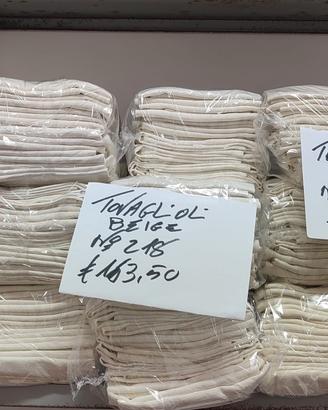 TOVAGLIOLI
BEIGE
N° 218
€ 163,50